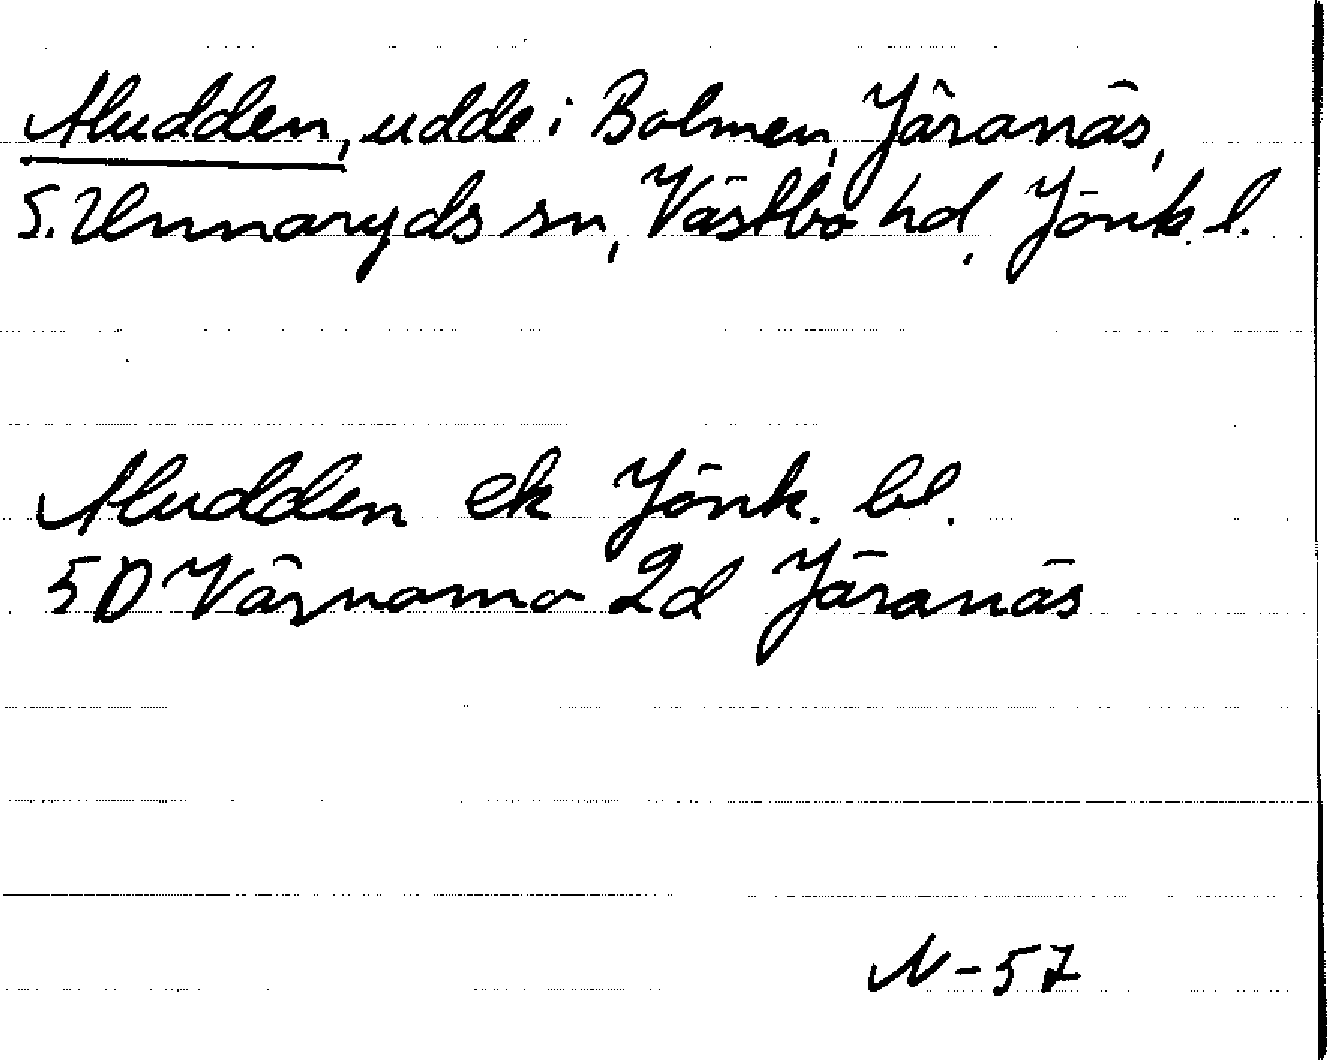 Aludden, udde i Bolmen, Järanäs,
S. Unnaryds sn, Västbo hd, Jönk. l.
Aludden ek Jönk. bl.
5D Värnamo 2d Järanäs
N-57